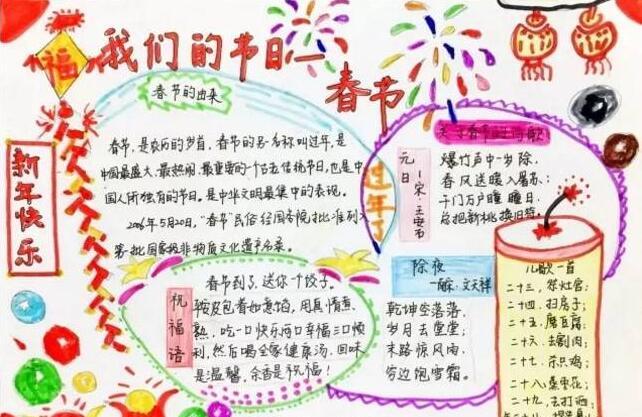 福
我们的节日—
春节
新年快乐
春节的由来
春节,是农历的岁首,春节的另一名称叫过年,是
中国最盛大、最热闹、最重要的一个古老传统节日,也是中
国人所独有的节日。是中华文明最集中的表现。
2006年5月20日,"春节"民俗经国务院批准列入
第一批国家级非物质文化遗产名录。
过年了
元日
—宋·王安石
爆竹声中一岁除,
春风送暖入屠苏;
千门万户曈曈日,
总把新桃换旧符。
祝福语
春节到了,送你个饺子。
鞍皮包着如意馅,用真情煮
熟,吃一口快乐两口幸福三口顺
利,然后喝全家健康汤,回味
是温馨,余香是祝福!
除夜
—南宋·文天祥
乾坤空落落,
岁月去堂堂;
末路惊风雨,
穷边饱雪霜。
儿歌一首
二十三,祭灶官;
二十四,扫房子;
二十五,磨豆腐;
二十六,去割肉;
二十七,杀只鸡;
二十八,蒸枣花;
二十九,去打酒;